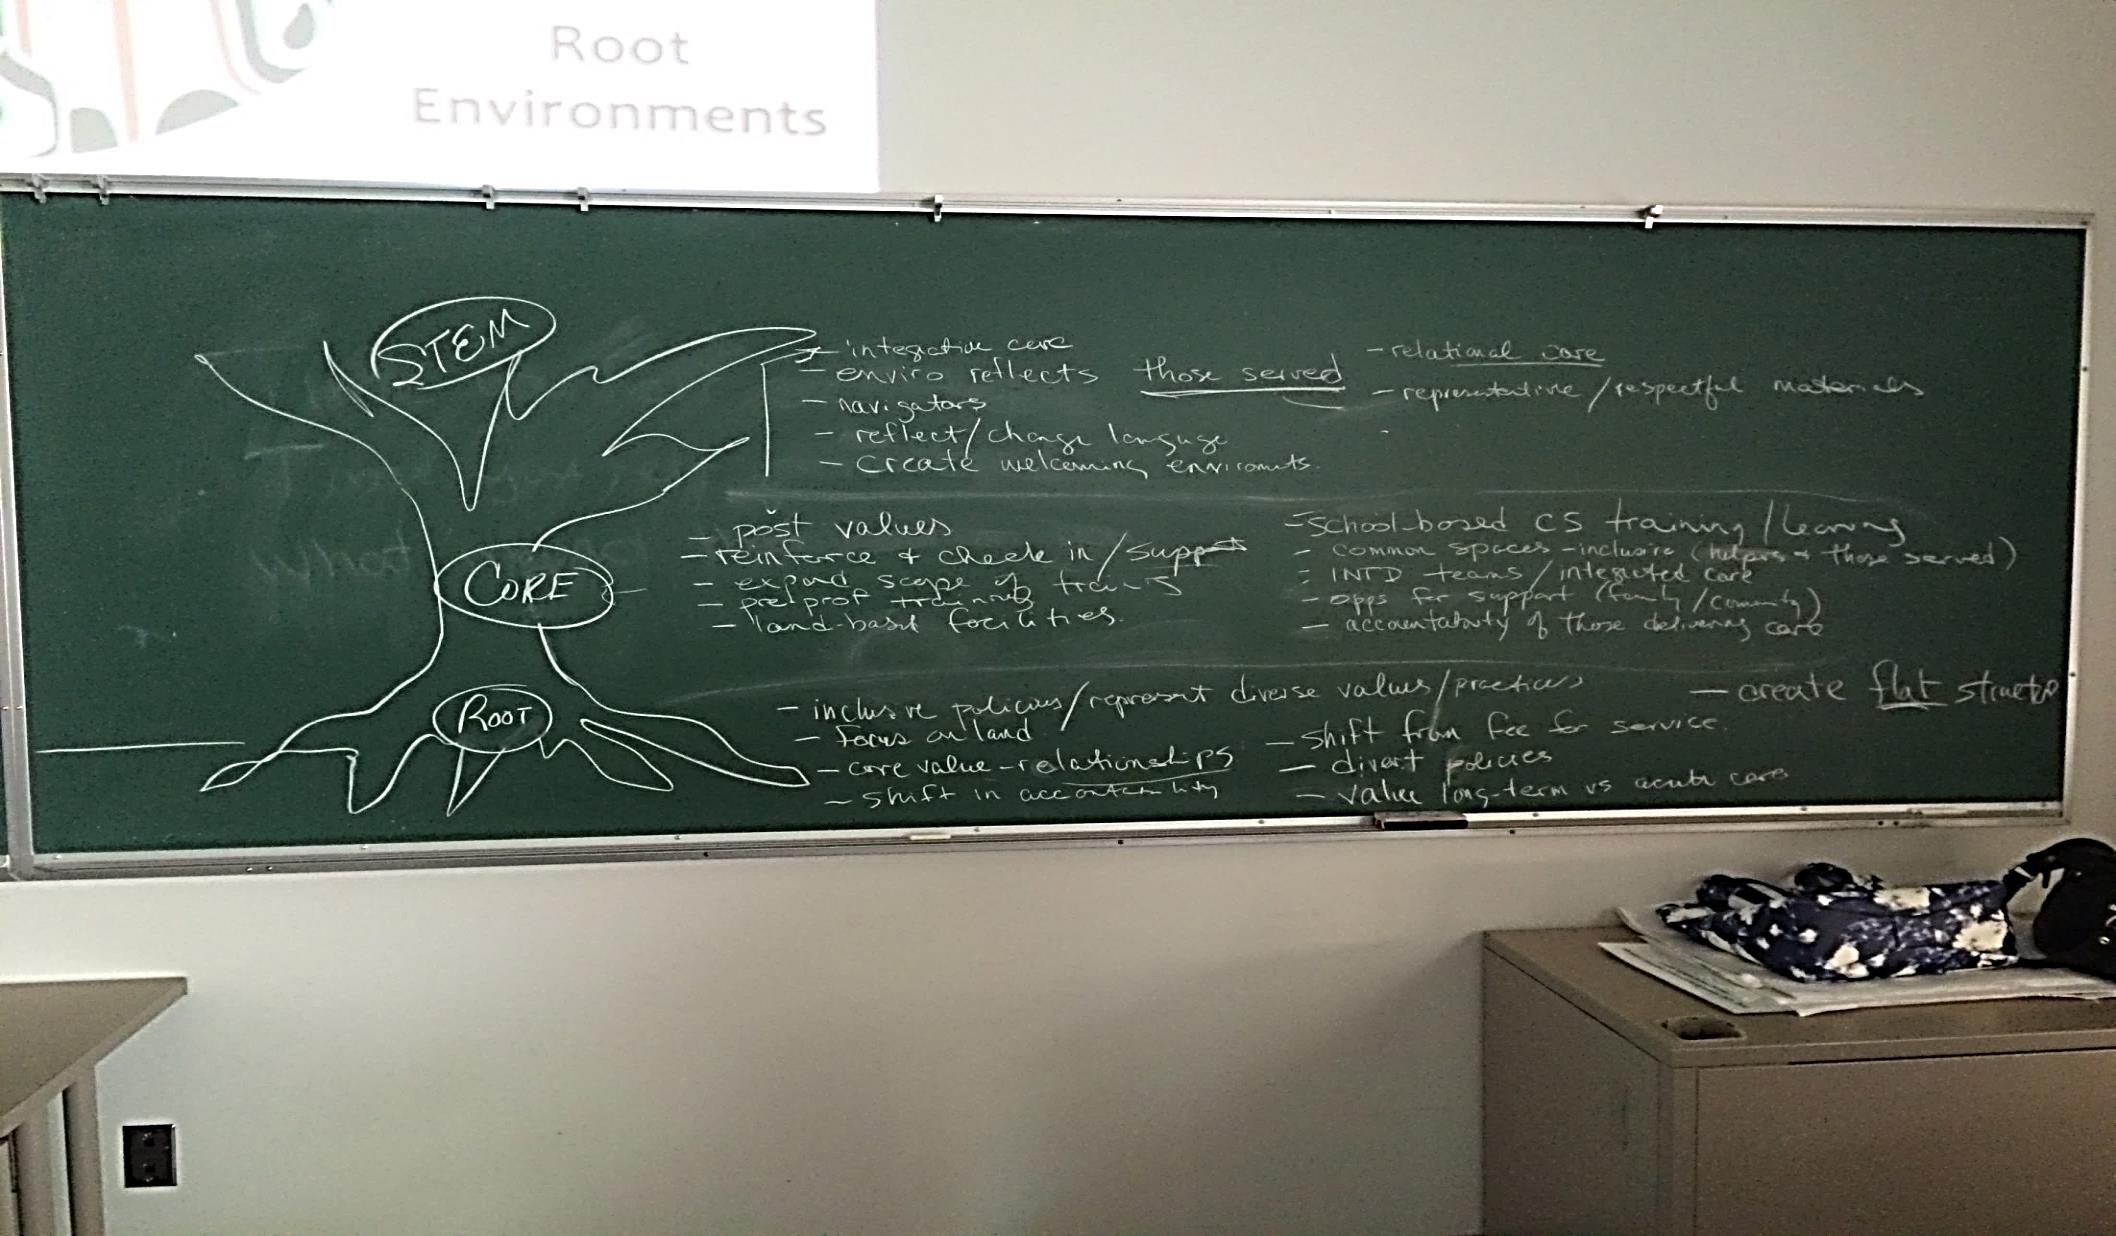 Root
Environments
STEM
- integrative care
- enviro reflects those served
- navigators
- reflect/change language
- create welcoming enviroments.
- relational care
- representative/respectful materials
CORE
- post values
- reinforce + check in/support
- expand scope of training
- pre/prof training
- land-based facilities.
- School-based CS training/learning
- common spaces - inclusive (helpers + those served)
- INTD teams/integrated care
- opps for support (family/community)
- accountability of those delivering care
ROOT
- inclusive policies/represent diverse values/practices
- focus on land
- core value - relationships
- shift in accountability
- shift from fee for service.
- divert policies
- value long-term vs acute care
- create flat structure